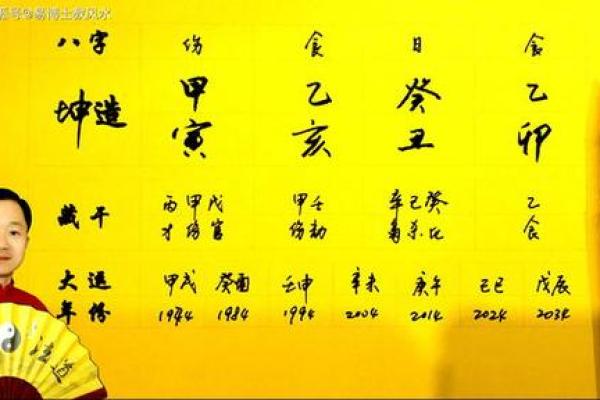 号@易博士教风水
八字 伤 食 日 食
甲 乙 癸 乙
坤造
寅 亥 丑 卯
丙甲戊 甲壬 辛己癸 乙
藏干
才伤官 伤劫 枭杀比 食
大运 甲戌 癸酉 壬申 辛未 庚午 己巳 戊辰
年份 1974 1984 1994 2004 2014 2024 2034